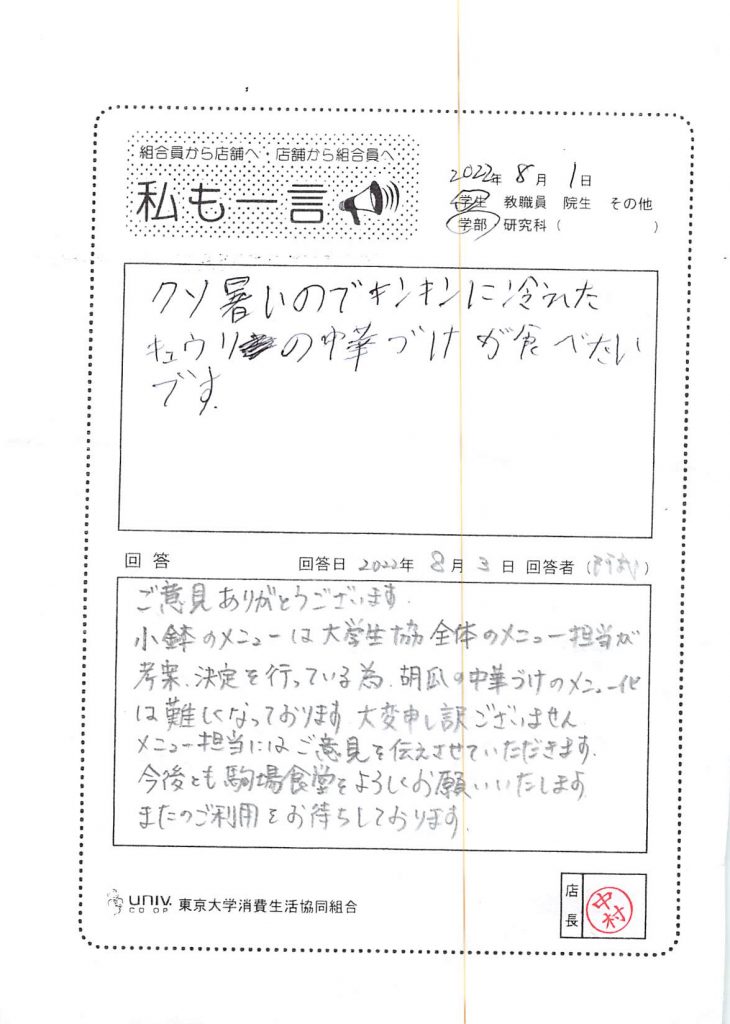 組合員から店舗へ・店舗から組合員へ
私も一言
2022年 8月 1日
学生 教職員 院生 その他
学部・研究科（ ）
クソ暑いのでキンキンに冷えた
キュウリの中華づけが食べたい
です。
回答 回答日 2022年 8月 3日 回答者（ ）
ご意見ありがとうございます。
小鉢のメニューは大学生協全体のメニュー担当が
考案、決定を行っている為、胡瓜の中華づけのメニュー化
は難しくなっております。大変申し訳ございません。
メニュー担当にはご意見を伝えさせていただきます。
今後とも駒場食堂をよろしくお願いいたします。
またのご利用をお待ちしております。
UNIV. CO-OP 東京大学消費生活協同組合
店長 中村